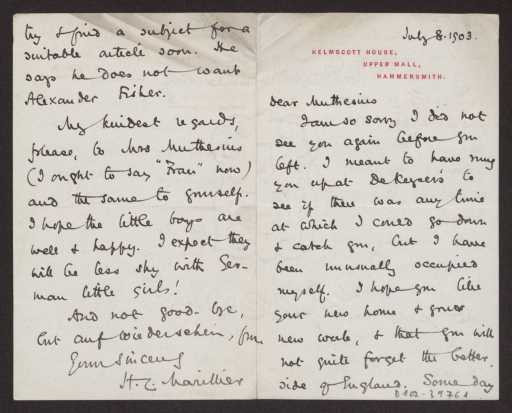 July 8. 1903.
KELMSCOTT HOUSE,
UPPER MALL,
HAMMERSMITH.
dear Muthesius
I am so sorry I did not
see you again before you
left. I meant to have rung
you up at De Keyser's to
see if there was any time
at which I could go down
& catch you, but I have
been unusually occupied
myself. I hope you like
your new home & your
new work, & that you will
not quite forget the better
side of England. Some day
try & find a subject for a
suitable article soon. He
says he does not want
Alexander Fisher.
My kindest regards,
please, to Mrs Muthesius
(I ought to say "Frau" now)
and the same to yourself.
I hope the little boys are
well & happy. I expect they
will be less shy with Ger-
man little girls!
And not good-bye,
but auf wiedersehen, from
Yours sincerely
H. C. Marillier